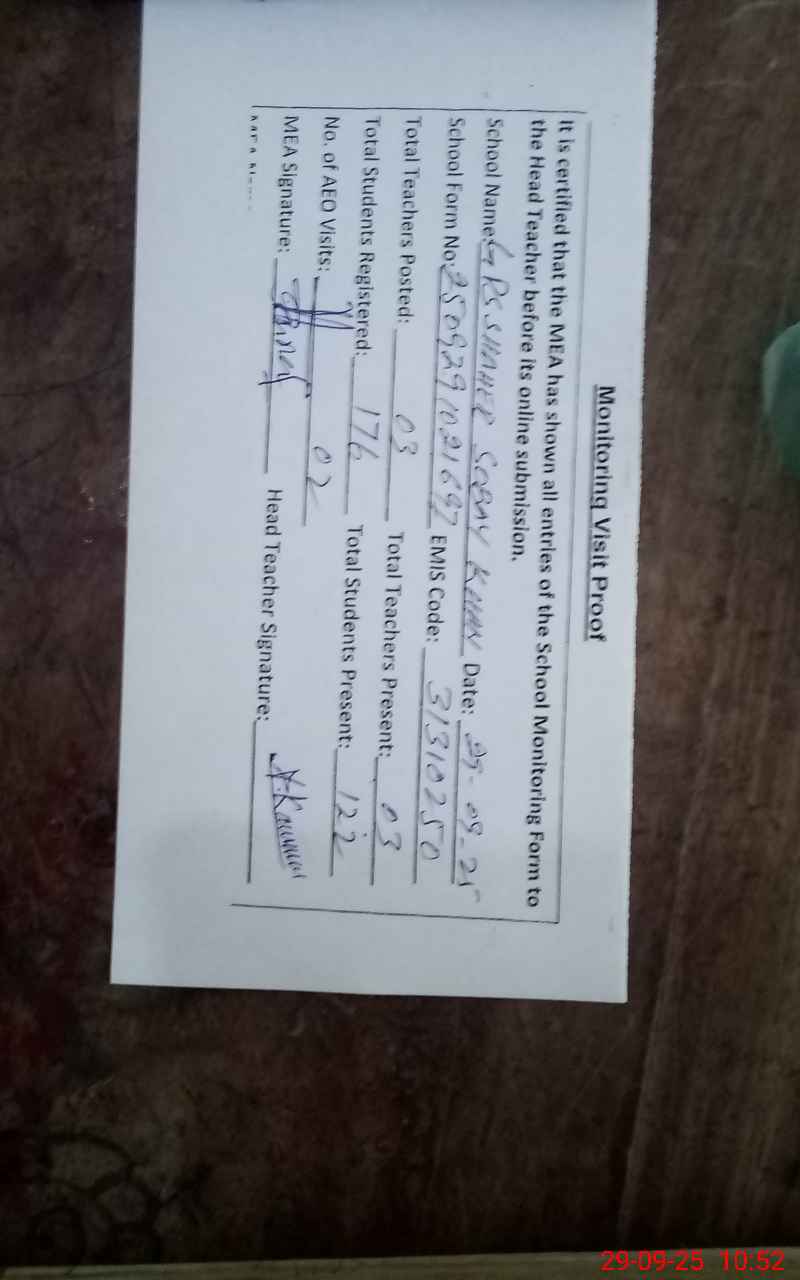 Monitoring Visit Proof
It is certified that the MEA has shown all entries of the School Monitoring Form to
the Head Teacher before its online submission.
School Name: GPS SHAHER SOBAY KHAN Date: 29-09-25
School Form No: 2509291021697 EMIS Code: 31310250
Total Teachers Posted: 03 Total Teachers Present: 03
Total Students Registered: 176 Total Students Present: 122
No. of AEO Visits: 02
MEA Signature: Head Teacher Signature:
29-09-25 10:52